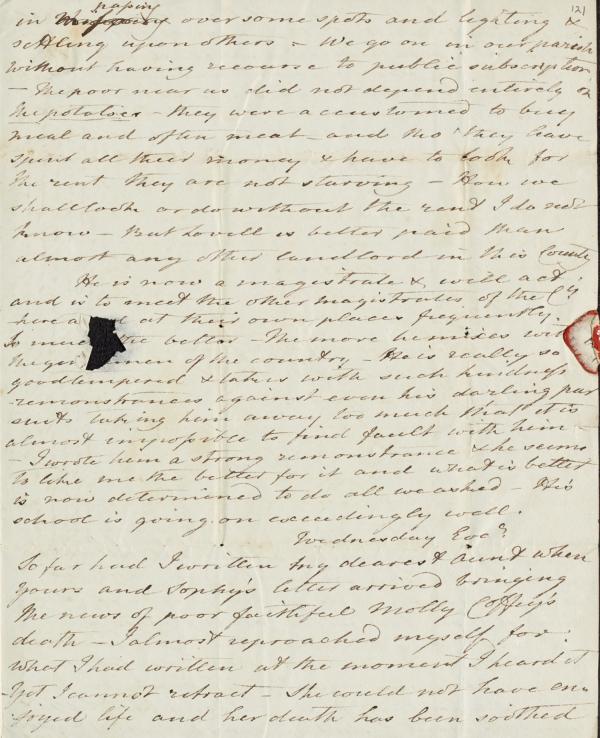 121
passing
in over some spots and lighting &
settling upon others – We go on in our parish
without having recourse to public subscription
– The poor near us did not depend entirely on
the potatoes – they were accustomed to buy
meal and often meat – and tho' they have
spent all their money & have to look for
the rent they are not starving – How we
shall look or do without the rent I do not
know – But Lovell is better paid than
almost any other landlord in this County
He is now a magistrate & will act
and is to meet the other magistrates of the Cy
here a d at their own places frequently.
So much the better – The more he mixes with
the gen men of the country – He is really so
goodtempered & takes with such kindness
remonstrances against even his darling pur
suits taking him away too much that it is
almost impossible to find fault with him
– I wrote him a strong remonstrance & he seems
to like me the better for it and what is better
is now determined to do all we asked – His
school is going on exceedingly well.
Wednesday Eve
So far had I written my dearest Aunt when
yours and Sophy's letter arrived bringing
the news of poor faithful Molly Coffey's
death – I almost reproached myself for
what I had written at the moment I heard it
Yet I cannot retract – She could not have en
joyed life and her death has been soothed